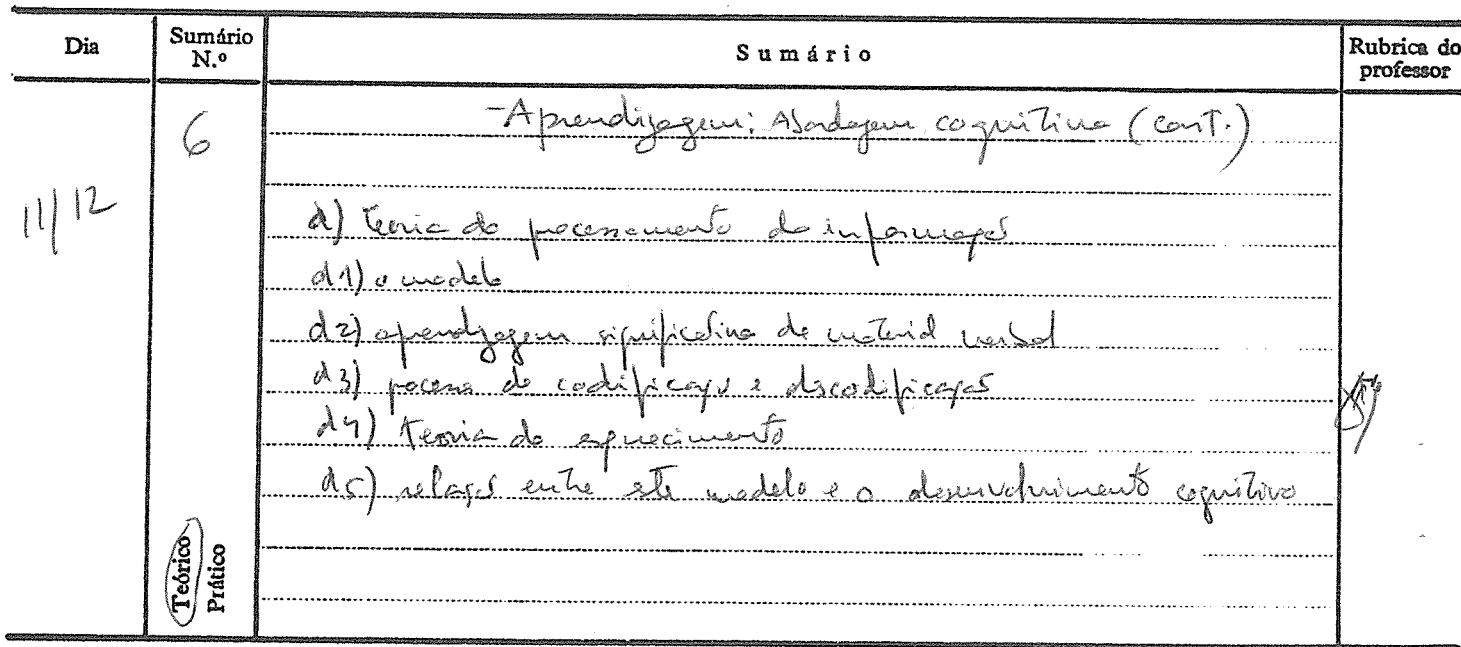 Dia
Sumário N.º
Sumário
Rubrica do professor
11/12
6
-Aprendizagem: Abordagem cognitiva (cont.)
d) teoria do processamento da informação
d1) o modelo
d2) aprendizagem significativa de material verbal
d3) processo de codificação e descodificação
d4) teoria do esquecimento
d5) relação entre este modelo e o desenvolvimento cognitivo
Teórico
Prático